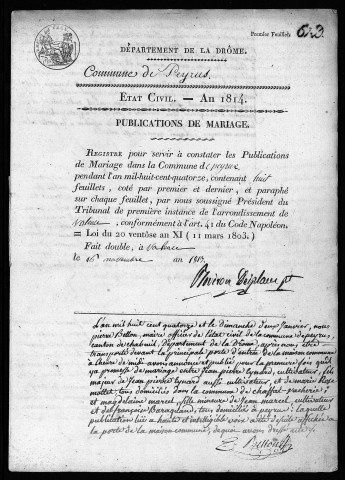 Premier Feuillet.
DÉPARTEMENT DE LA DRÔME.
Commune de Peyrus
ETAT CIVIL. — AN 1814.
PUBLICATIONS DE MARIAGE.
REGISTRE pour servir à constater les Publications
de Mariage dans la Commune de peyrus
pendant l'an mil-huit-cent-quatorze, contenant huit
feuillets, coté par premier et dernier, et paraphé
sur chaque feuillet, par nous soussigné Président du
Tribunal de première instance de l'arrondissement de
Valence, conformément à l'art. 41 du Code Napoléon.
= Loi du 20 ventôse an XI (11 mars 1803.)
Fait double, à Valence
le 16 novembre an 1813.
L'an mil huit cent quatorze et le dimanche deux Janvier, nous
pierre Bellon, maire officier de l'état civil de la commune de peyrus,
canton de chabeuil, département de la Drôme, après nous être
transporté devant la principale porte d'entrée de la maison commune
à l'heure de midi avons annoncé et publié pour la première fois qu'il
y a promesse de mariage entre Jean pierre, cultivateur, fils
majeur de Jean pierre aussi cultivateur, et de marie Rose
mottet tous domiciliés dans la commune de
et magdelaine marcel fille mineure de Jean marcel cultivateur
et de françoise, tous domiciliés à peyrus; la quelle
publication lue à haute et intelligible voix a été de suite affichée à
la porte de la maison commune, de quoi avons dressé acte
Bellon